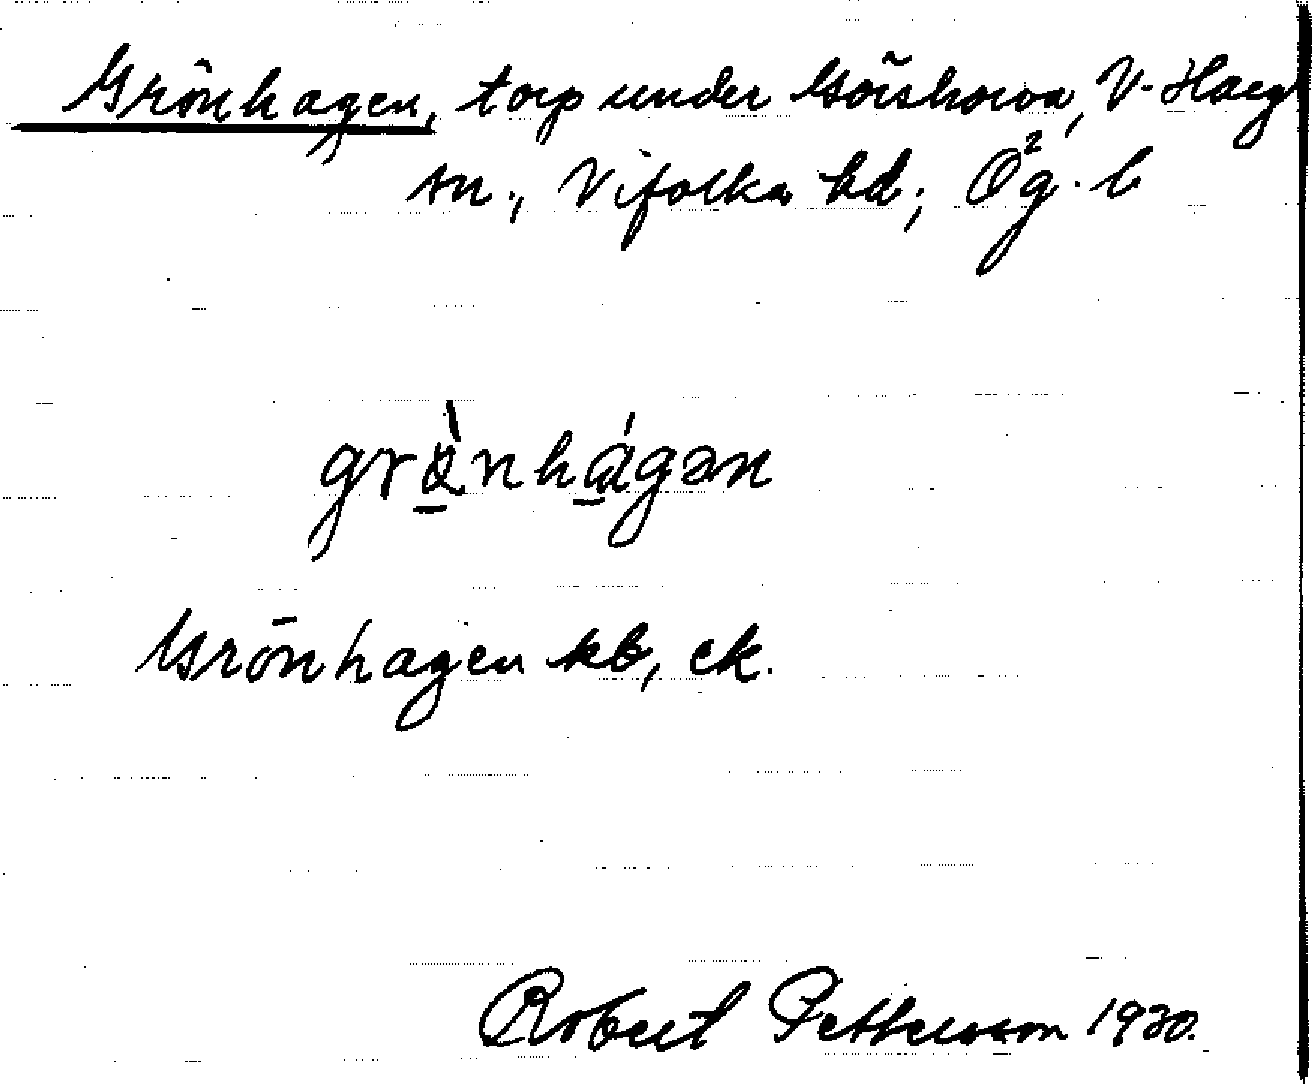 Grönhagen, torp under Görskorva, V. Harg
sn., Vifolka hd; Ög. l
grö̀nhágən
Grönhagen kb, ek.
Robert Pettersson 1930.